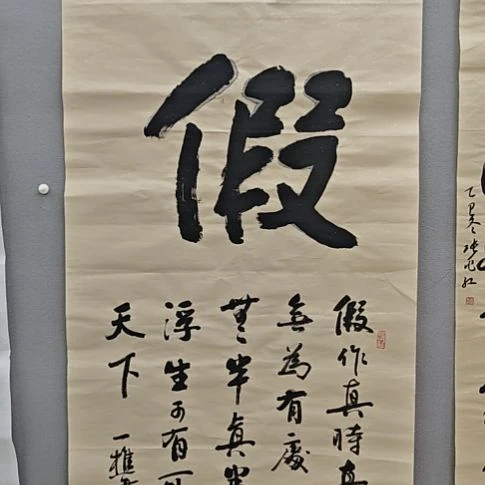 假
假作真時真
無為有處
無半真半
浮生可有可
天下
一樵
乙巳冬